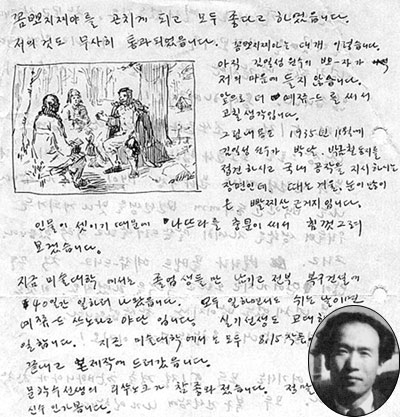 꼼뽀지찌야를 고치게 되고 모두 좋다고 하였습니다.
저의 것도 무사히 통과되였습니다. 꼼뽀지찌야는 대개 이렇습니다.
아직 김일성 원수의 뽀-자가
저의 마음에 들지 않습니다.
앞으로 더 에쮸-드를 써서
고칠 생각입니다.
그린 내용은 1935년 11월에
김일성 원수가 박달, 박금철 동지를
접견하시고 국내 공작을 지시하시는
장면인데 때는 겨울, 눈이 많이
온 빨찌산 근거지입니다.
인물이 셋이기 때문에 나뜨라를 충분이 써서 힘껏 그려
보겠습니다.
지금 미술대학에서는 졸업생들만 남기고 전부 복구건설에
40일간 일하러 나왔습니다. 모두 일하면서도 쉬는 날이면
에쮸-드 쓰노라고 야단입니다. 실기선생도 교대
일합니다. 지금 미술대학에서도 모두 8.15 작품
끝내고 본제작에 드러갔습니다.
문학수선생의 리쑤노크가 참 좋와졌습니다. 정말
신수 인가봅니다.